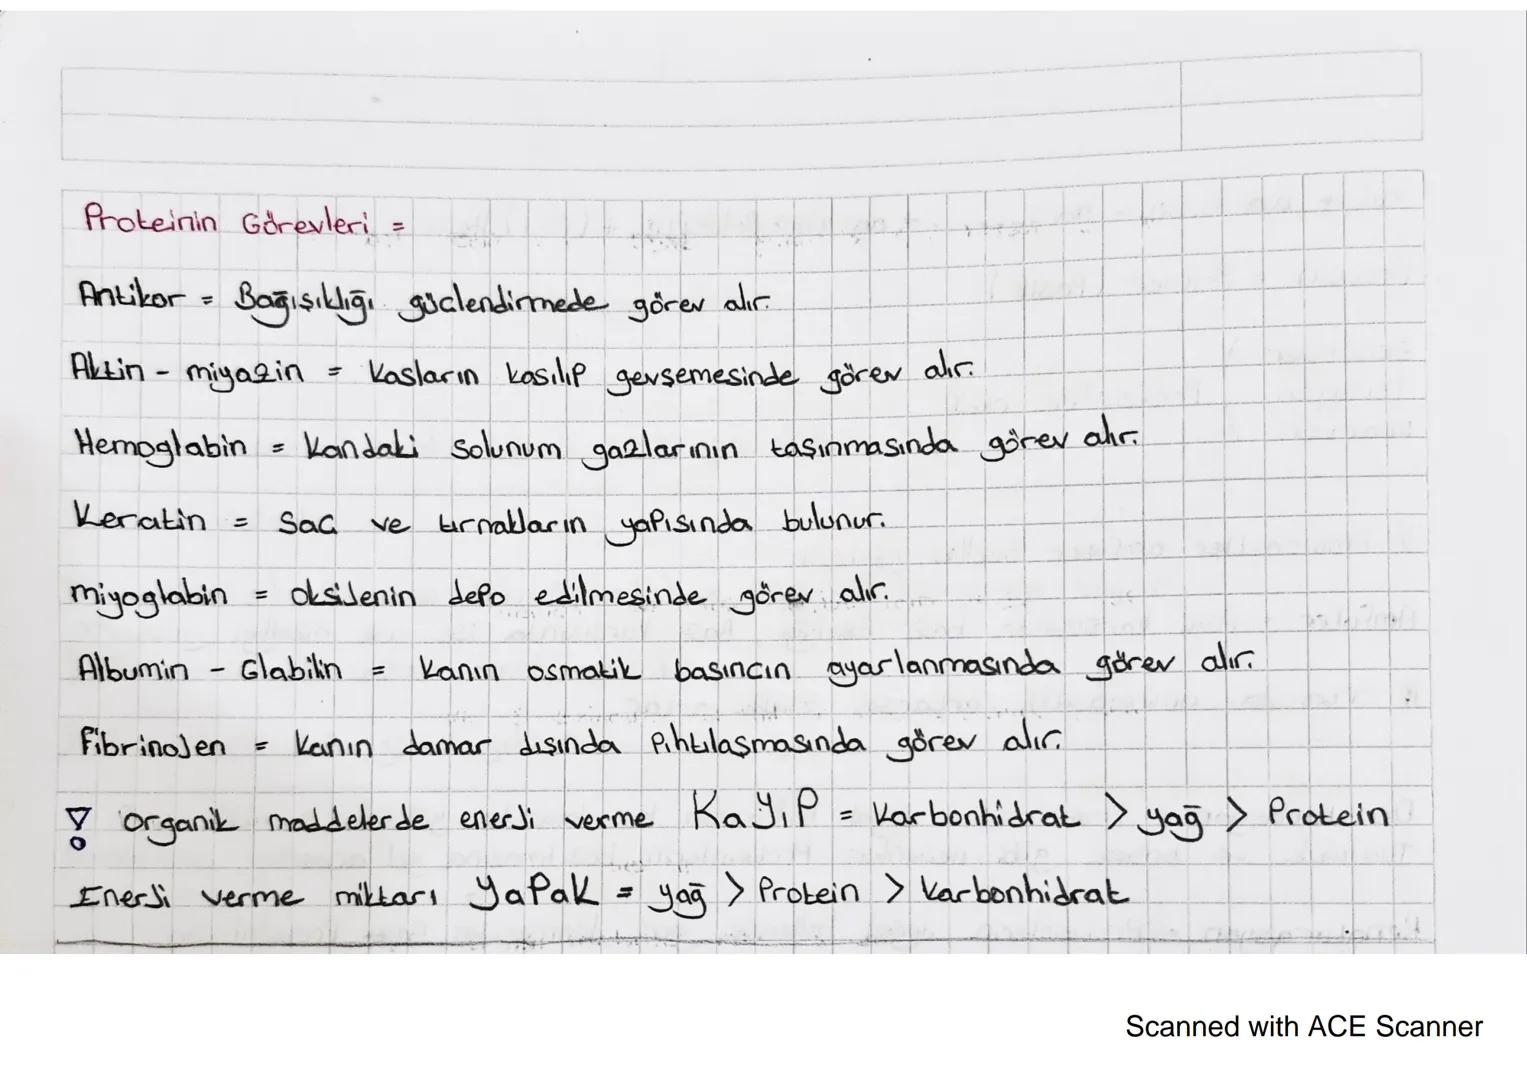 Proteinin Görevleri =
Antikor = Bağışıklığı güclendirmede görev alır.
Aktin - miyazin = kasların kasılıp gevşemesinde görev alır.
Hemoglabin = kandaki solunum gazlarının taşınmasında görev alır.
Keratin = sac ve tırnakların yapısında bulunur.
miyoglabin = oksijenin depo edilmesinde görev alır.
Albumin - Glabilin = kanın osmatik basıncın ayarlanmasında görev alır.
Fibrinojen = kanın damar dışında pıhtılaşmasında görev alır.
! organik maddelerde enerji verme KaYıP = karbonhidrat > yağ > Protein
Enerji verme miktarı YaPaK = yağ > Protein > karbonhidrat
Scanned with ACE Scanner